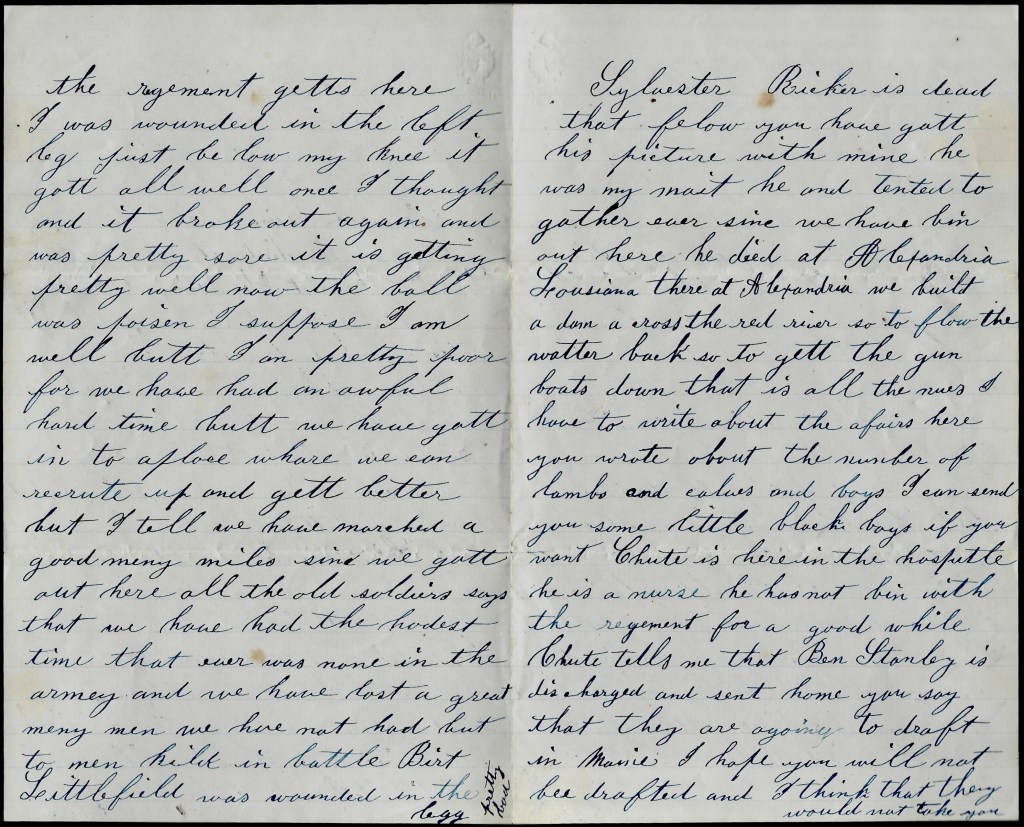 the regement getts here
I was wounded in the left
leg just be low my knee it
gott all well once I thought
and it broke out again and
was pretty sore it is getting
pretty well now the ball
was poisen I suppose I am
well butt I an pretty poor
for we have had an awful
hard time butt we have gott
in to aplace whare we can
recrute up and gett better
but I tell we have marched a
good meny miles sinc we gott
out here all the old soldiers says
that we have had the hodest
time that ever was none in the
armey and we have lost a great
meny men we have not had but
to men kild in battle Birt
Littlefield was wounded in the
legg pretty bad
Sylvester Ricker is dead
that felow you have gott
his picture with mine he
was my mait he and tented to
gather ever sinc we have bin
out here he died at Alexandria
Lousiana there at Alexandria we built
a dam a cross the red river so to flow the
watter back so to gett the gun
boats down that is all the nues I
have to write about the afairs here
you wrote about the number of
lambs and calves and boys I can send
you some little black boys if you
want Chute is here in the hosputle
he is a nurse he has not bin with
the regement for a good while
Chute tells me that Ben Stanley is
dis charged and sent home you say
that they are agoing to draft
in Maine I hope you will not
bee drafted and I think that they
would not take you